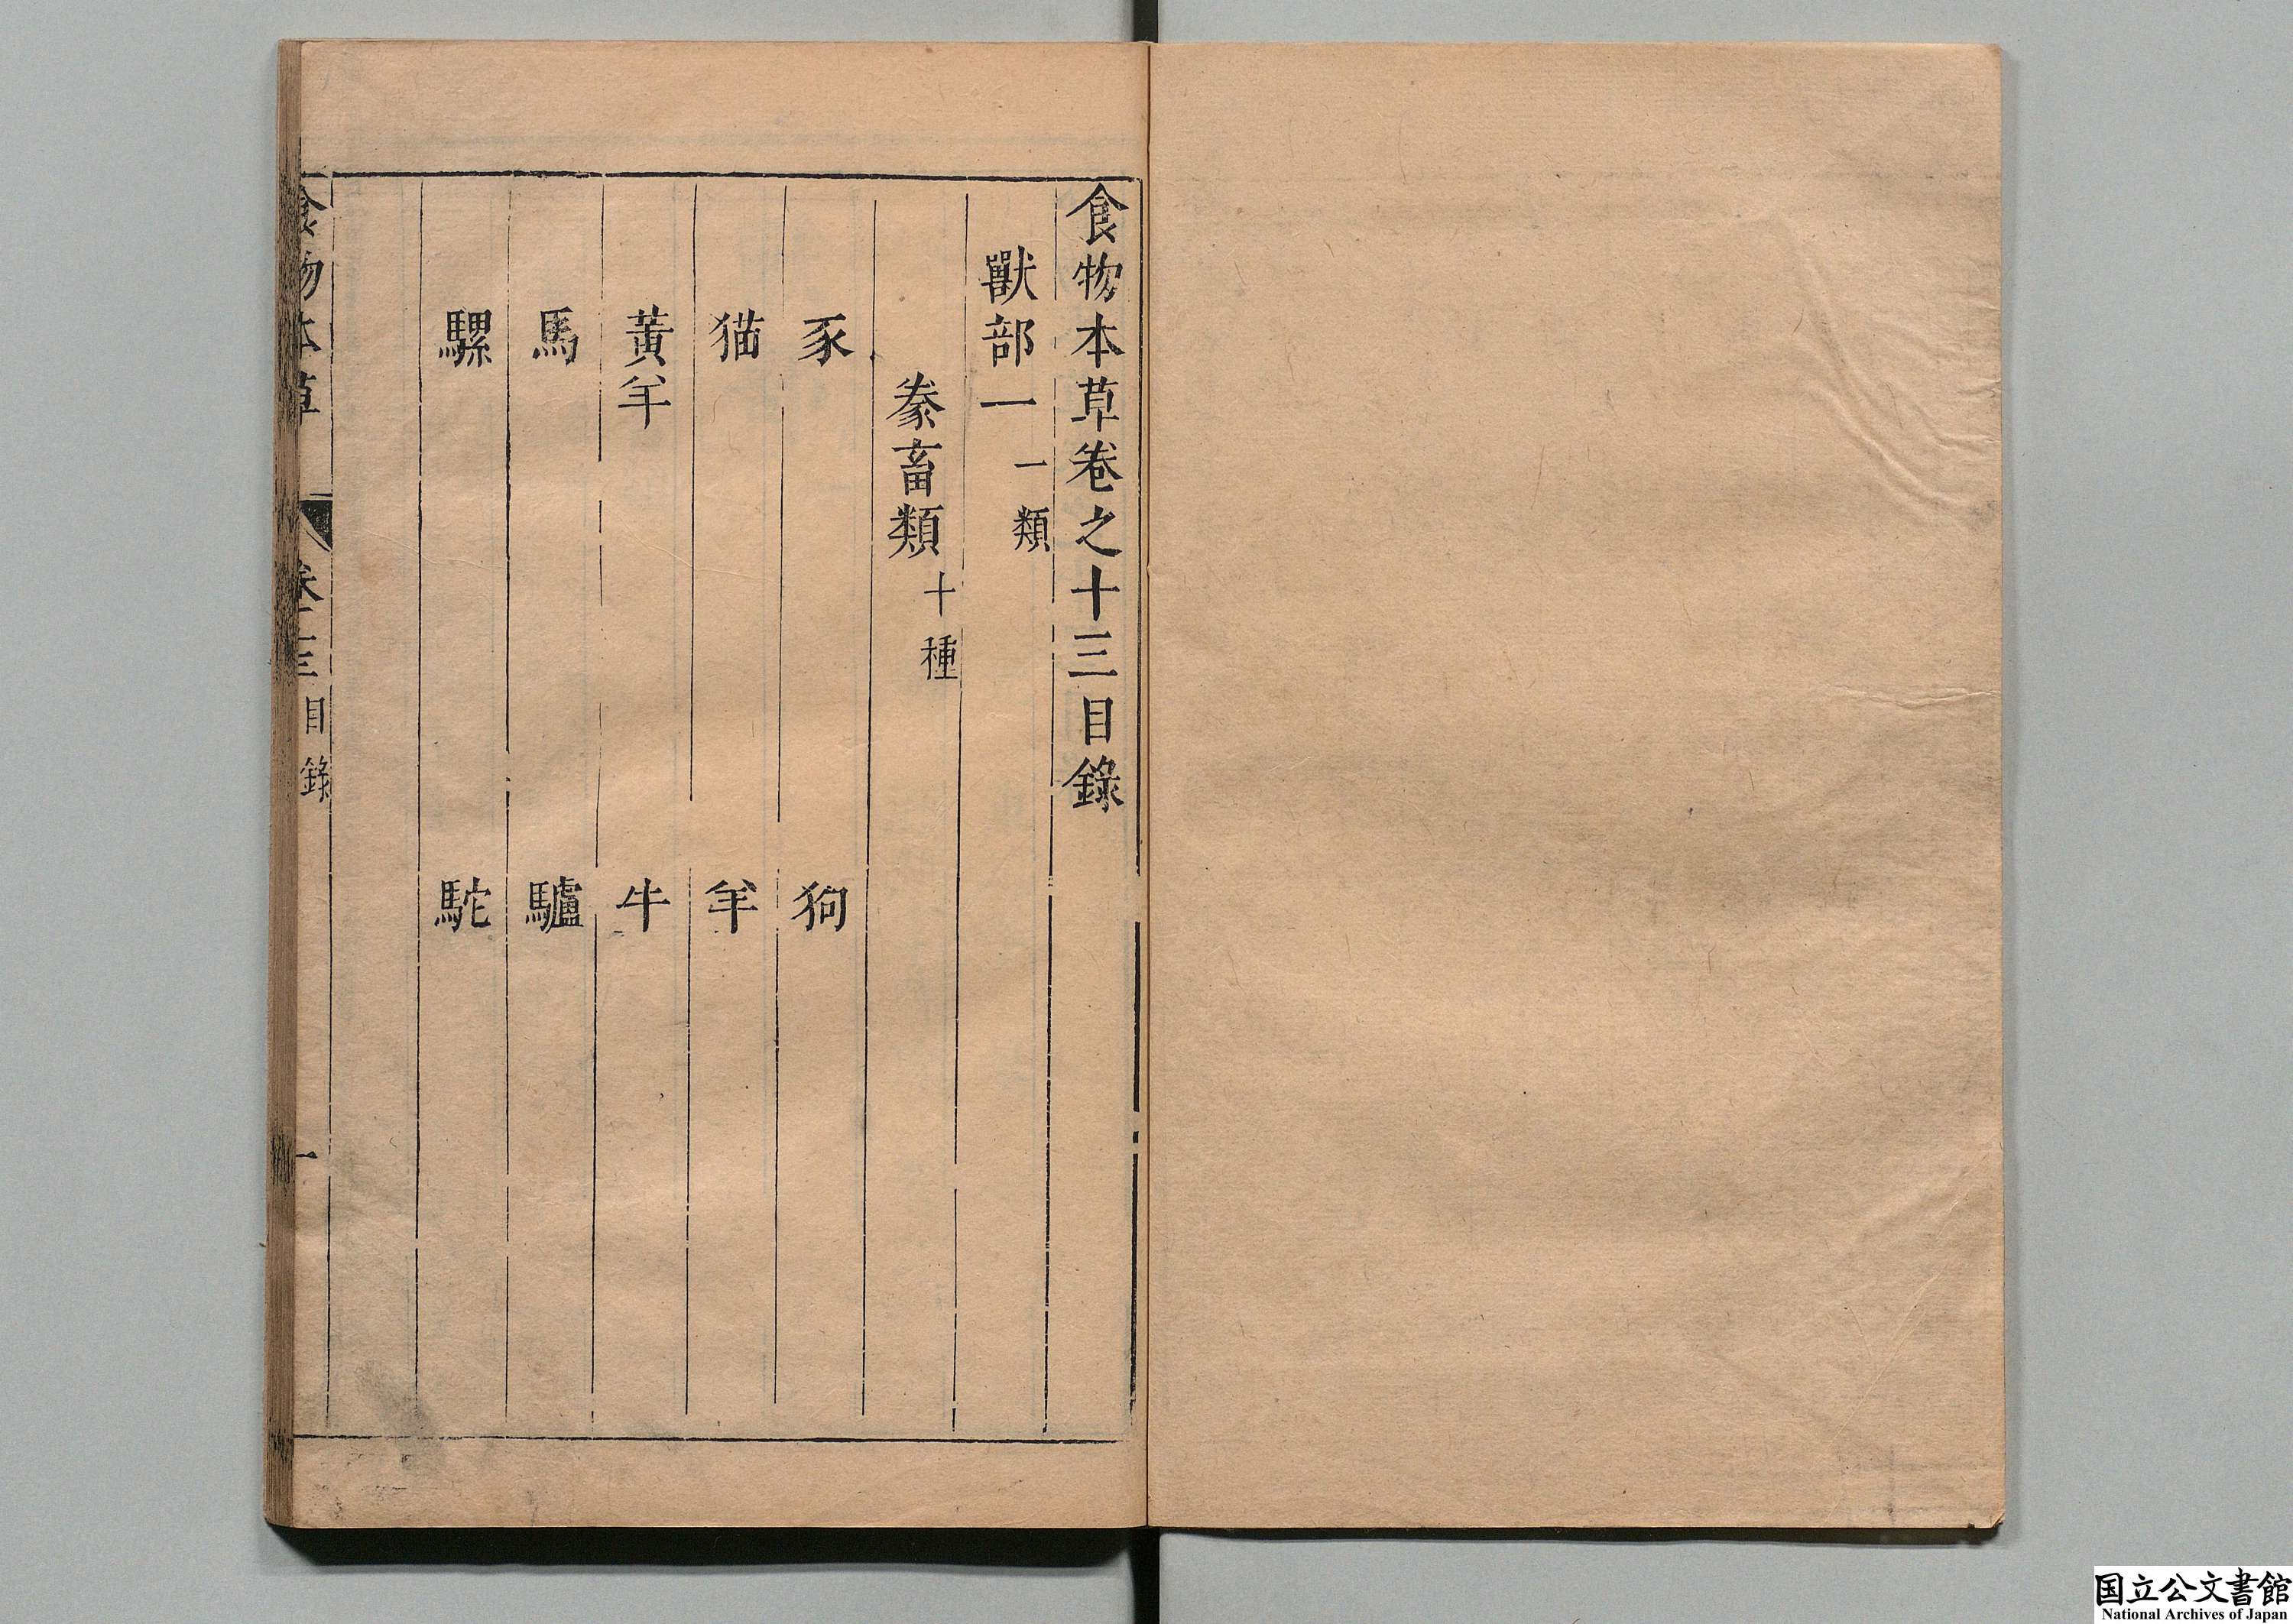 食物本草卷之十三目錄
獸部一 一類
豢畜類 十種
豕 狗
猫 羊
黃羊 牛
馬 驢
騾 駝
食物本草 卷十三 目錄 一
国立公文書館
National Archives of Japan